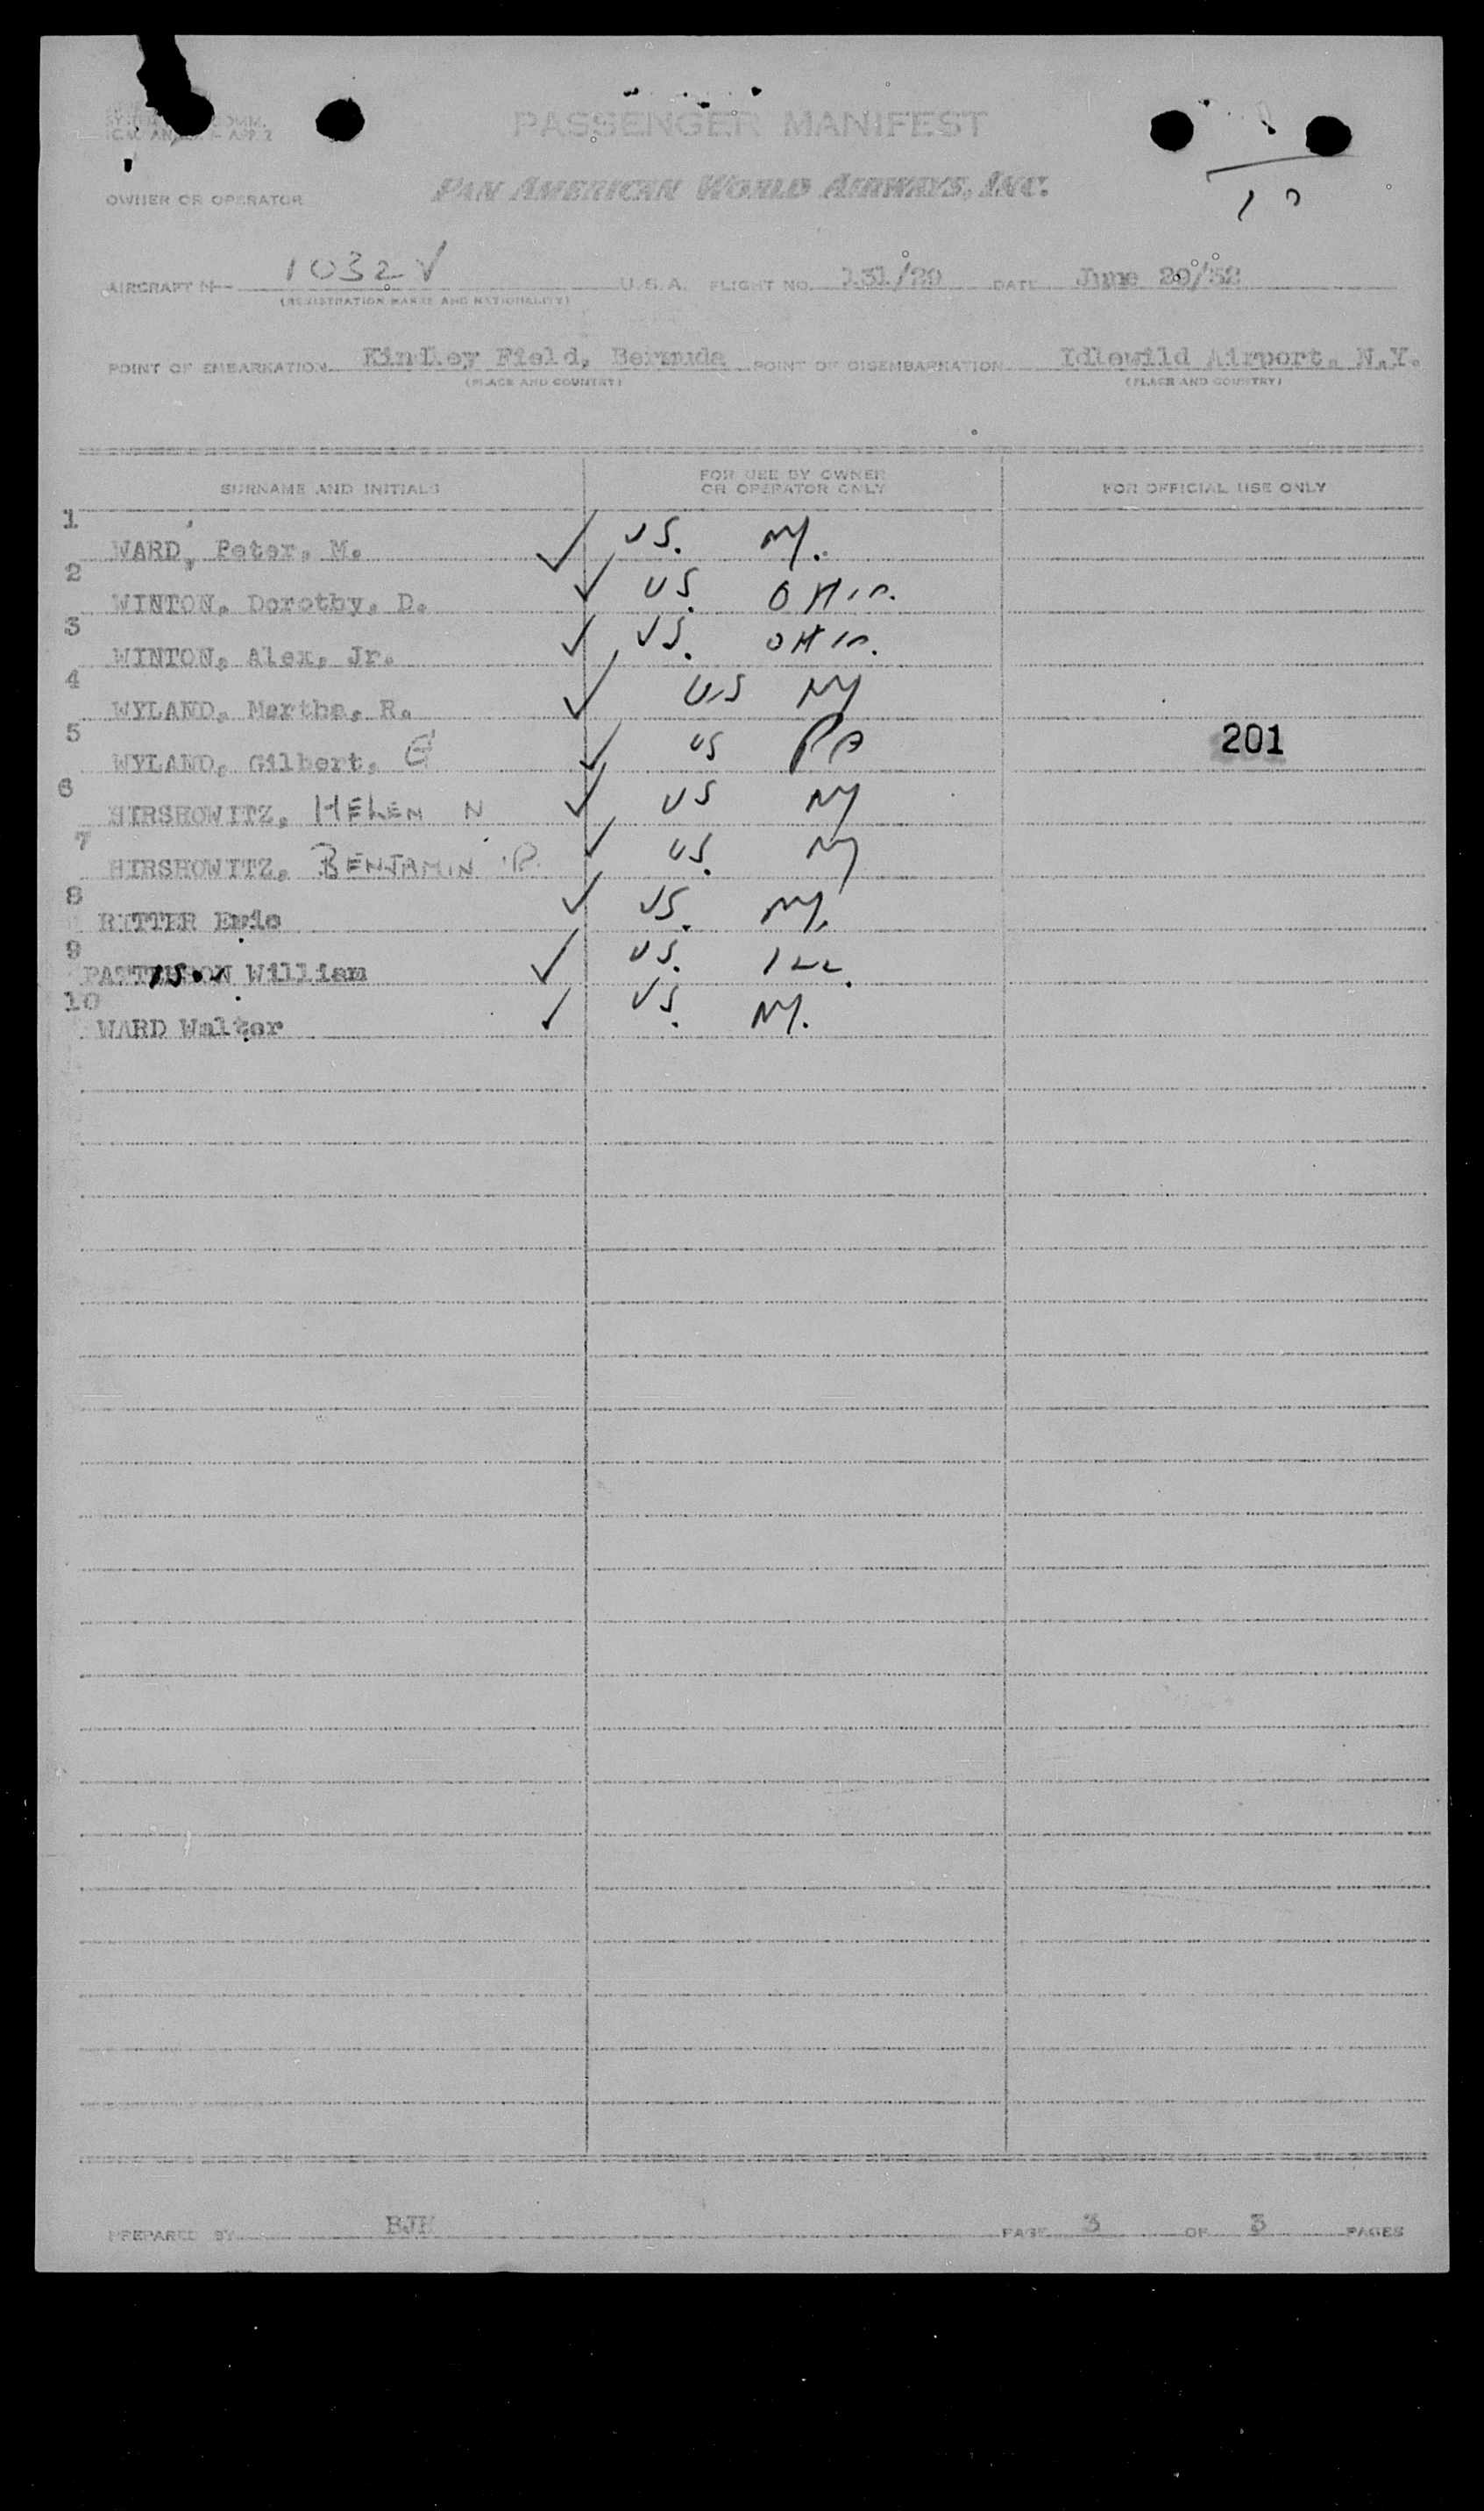 PASSENGER MANIFEST
OWNER OR OPERATOR PAN AMERICAN WORLD AIRWAYS, INC.
10
AIRCRAFT N 1032V U.S.A. FLIGHT NO. 131/29 DATE June 29/52
(REGISTRATION MARKS AND NATIONALITY)
POINT OF EMBARKATION Kindley Field, Bermuda POINT OF DISEMBARKATION Idlewild Airport, N.Y.
(PLACE AND COUNTRY) (PLACE AND COUNTRY)
SURNAME AND INITIALS FOR USE BY OWNER OR OPERATOR ONLY FOR OFFICIAL USE ONLY
1 WARD, Peter, M. ✓ US. NY.
2 WINTON, Dorothy, D. ✓ US. OHIO.
3 WINTON, Alex, Jr. ✓ US. OHIO.
4 WYLAND, Martha, R. ✓ US NY
5 WYLAND, Gilbert, G ✓ US PA 201
6 HIRSHOWITZ, HELEN N ✓ US NY
7 HIRSHOWITZ, BENJAMIN P. ✓ US. NY
8 RITTER ✓ US. NY.
9 William ✓ US. ILL.
10 WARD Walter ✓ US. NY.
PREPARED BY PAGE 3 OF 3 PAGES